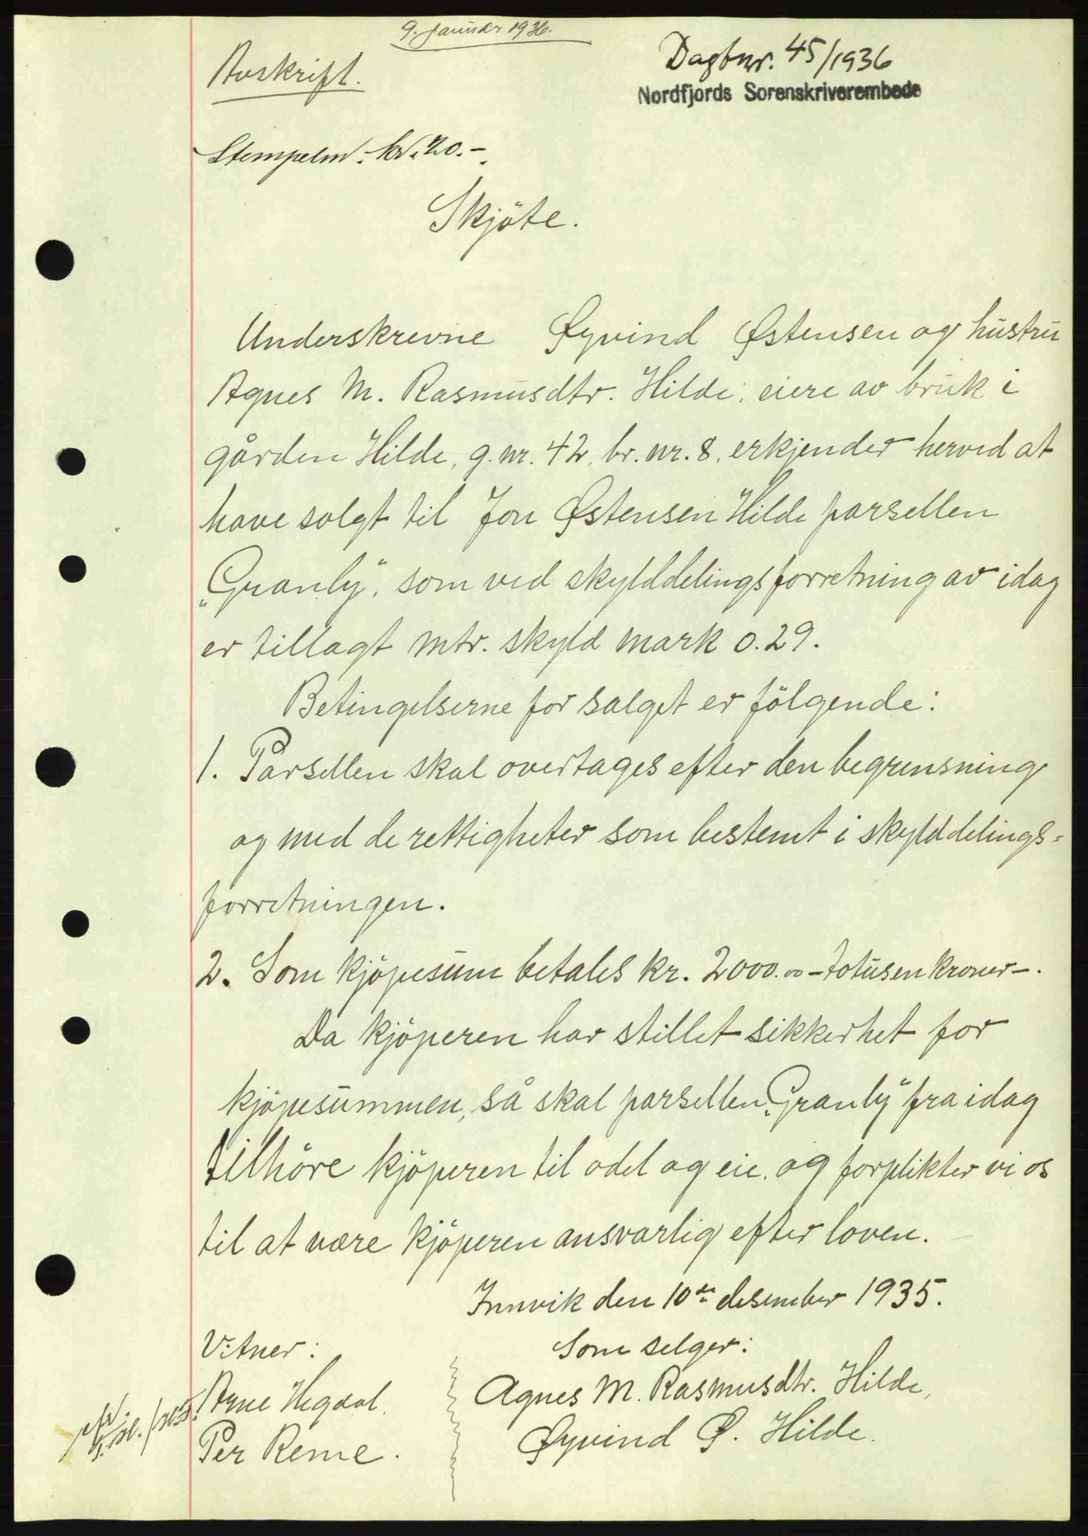 9. januar 1936.
Avskrift.
Dagbnr. 45/1936
Nordfjords Sorenskriverembede
Stempelm. kr. 20.-
Skjöte.
Underskrevne Øyvind Østensen og hustru
Agnes M. Rasmusdtr. Hilde, eiere av bruk i
gården Hilde, g. nr. 42, br. nr. 8, erkjender herved at
have solgt til Jon Østensen Hilde parsellen
„Granly", som ved skylddelingsforretning av idag
er tillagt mtr. skyld mark 0.29.
Betingelserne for salget er fölgende:
1. Parsellen skal overtages efter den begrensning
og med de rettigheter som bestemt i skylddelings-
forretningen.
2. Som kjöpesum betales kr. 2000.00 - totusen kroner -.
Da kjöperen har stillet sikkerhet for
kjöpesummen, så skal parsellen „Granly" fra idag
tilhöre kjöperen til odel og eie, og forplikter vi os
til at være kjöperen ansvarlig efter loven.
Innvik den 10de desember 1935.
Vitner:
Som selger:
Arne
Agnes M. Rasmusdtr. Hilde,
Per Reme.
Øyvind Ø. Hilde.